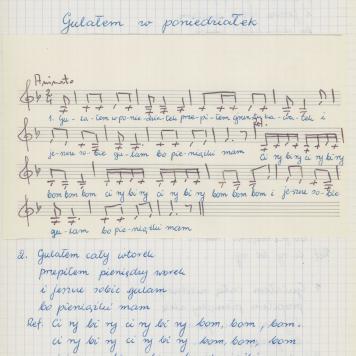 Gulałem w poniedziałek
Animato
1. Gu - la - łem w po-nie-dzia-łek prze-pi-łem ka-wa-łek i
Ref.
je-szcze so-bie gu-lam bo pie-niążki mam Ci ny bi ny ci ny bi ny
bom bom bom ci ny bi ny ci ny bi ny bom bom bom i je-szcze so-bie
gu-lam bo pie-niążki mam
2. Gulałem cały wtorek
przepiłem pieniędzy worek
i jeszcze sobie gulam
bo pieniążki mam
Ref. Ci ny bi ny ci ny bi ny bom, bom, bom.
ci ny bi ny ci ny bi ny bom, bom, bom.